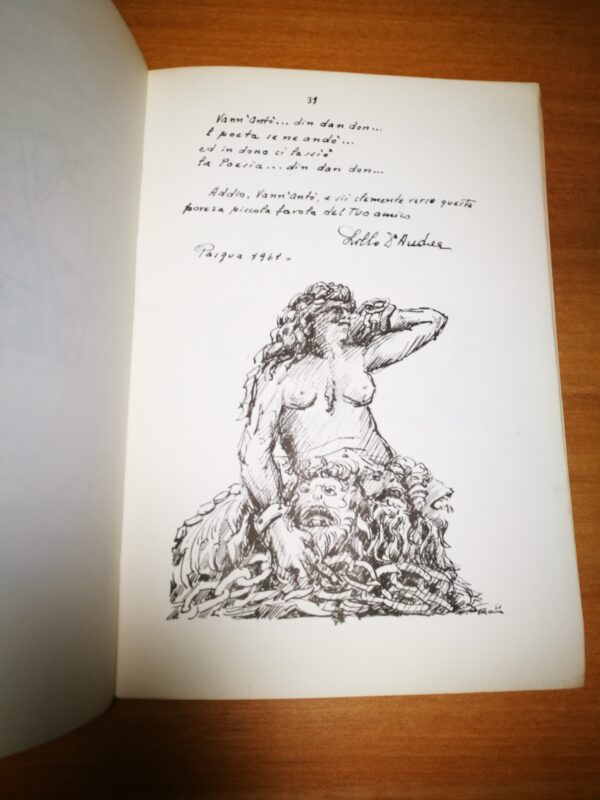 31
Vann'Antò... din dan don...
E poeta se ne andò...
ed in dono ci lasciò
la Poesia... din dan don...
Addio, Vann'Antò, e sii clemente verso questa
povera piccola favola del Tuo amico
Lillo D'Andrea
Pasqua 1961.
61